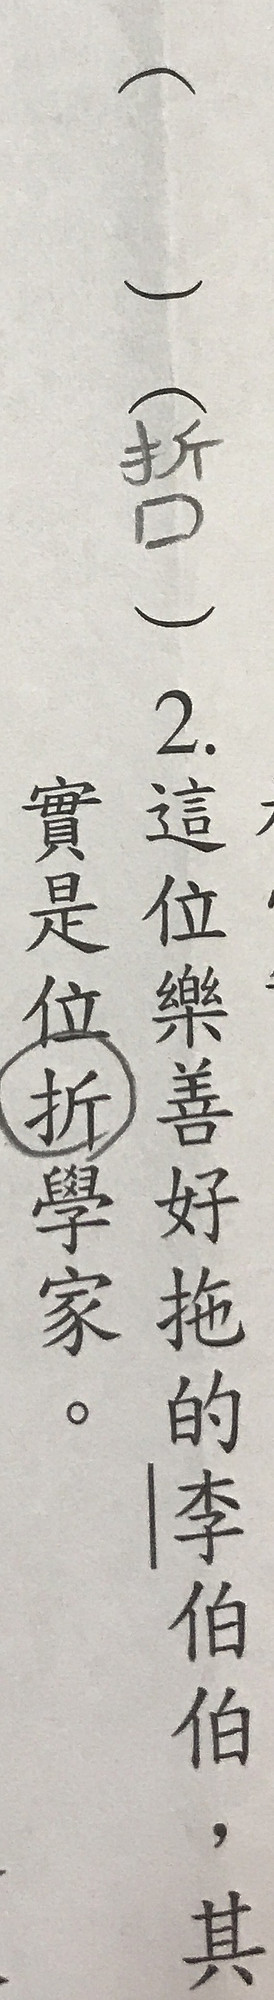 （　）（哲）2.這位樂善好拖的李伯伯，其
實是位折學家。